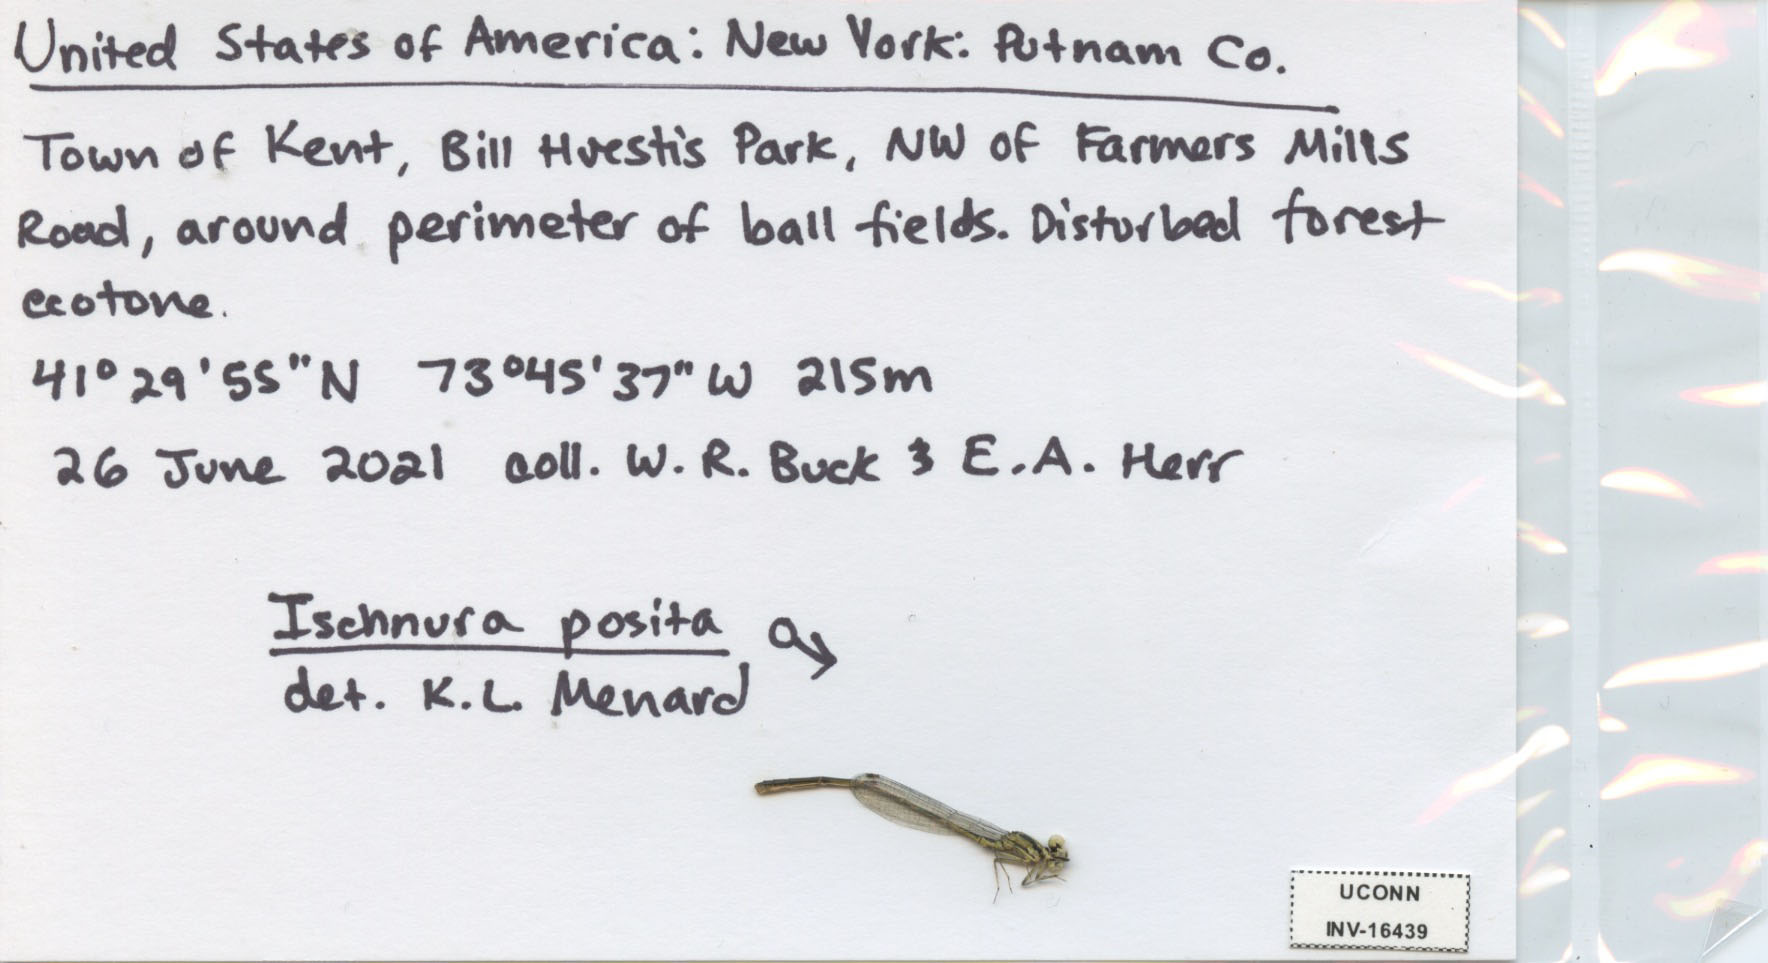 United States of America: New York: Putnam Co.
Town of Kent, Bill Huestis Park, NW of Farmers Mills
Road, around perimeter of ball fields. Disturbed forest
ecotone.
41° 29' 55" N 73° 45' 37" W 215m
26 June 2021 coll. W. R. Buck & E. A. Herr
Ischnura posita ♂
det. K. L. Menard
UCONN
INV-16439